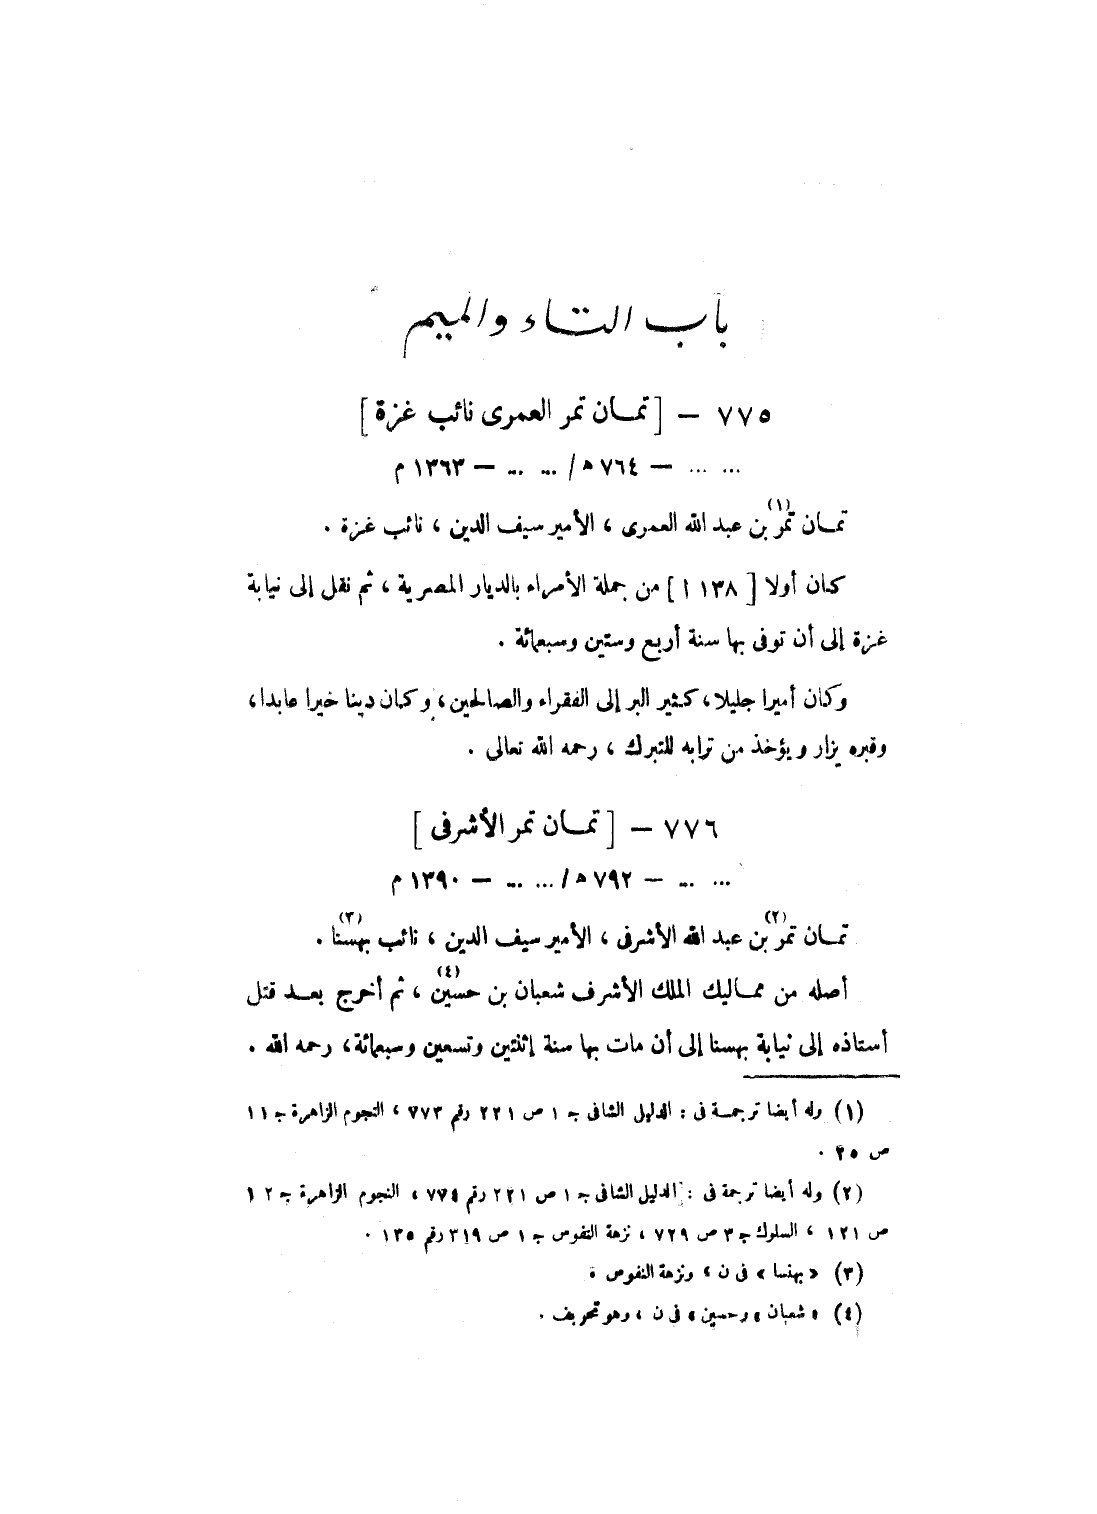 باب التاء والميم
٧٧٥ – [ تمـان تمر العمرى نائب غزة ]
... ... – ٧٦٤ ه / ... ... – ١٣٦٣ م
تمـان تمر(١) بن عبد الله العمرى ، الأمير سيف الدين ، نائب غزة .
كان أولا [ ١٣٨ أ ] من جملة الأمراء بالديار المصرية ، ثم نقل إلى نيابة
غزة إلى أن توفى بها سنة أربع وستين وسبعمائة .
وكان أميرا جليلا، كثير البر إلى الفقراء والصالحين، وكان دينا خيرا عابدا،
وقبره يزار ويؤخذ من ترابه للتبرك ، رحمه الله تعالى .
٧٧٦ – [ تمـان تمر الأشرفى ]
... ... – ٧٩٢ ه / ... ... – ١٣٩٠ م
تمـان تمر(٢) بن عبد الله الأشرفى ، الأمير سيف الدين ، نائب بهسنا(٣) .
أصله من ممـاليك الملك الأشرف شعبان بن حسين(٤) ، ثم أخرج بعـد قتل
أستاذه إلى نيابة بهسنا إلى أن مات بها سنة إثنتين وتسعين وسبعمائة، رحمه الله .
(١) وله أيضا ترجمـة فى : الدليل الشافى جـ ١ ص ٢٢١ رقم ٧٧٣ ، النجوم الزاهرة جـ ١١
ص ٢٥ .
(٢) وله أيضا ترجمة فى : الدليل الشافى جـ ١ ص ٢٢١ رقم ٧٧٤ ، النجوم الزاهرة جـ ١٢
ص ١٢١ ، السلوك جـ ٣ ص ٧٢٩ ، نزهة النفوس جـ ١ ص ٣١٩ رقم ١٣٥ .
(٣) « بهنسا » فى ن ، ونزهة النفوس .
(٤) « شعبان » وحسين » فى ن ، وهو تحريف .